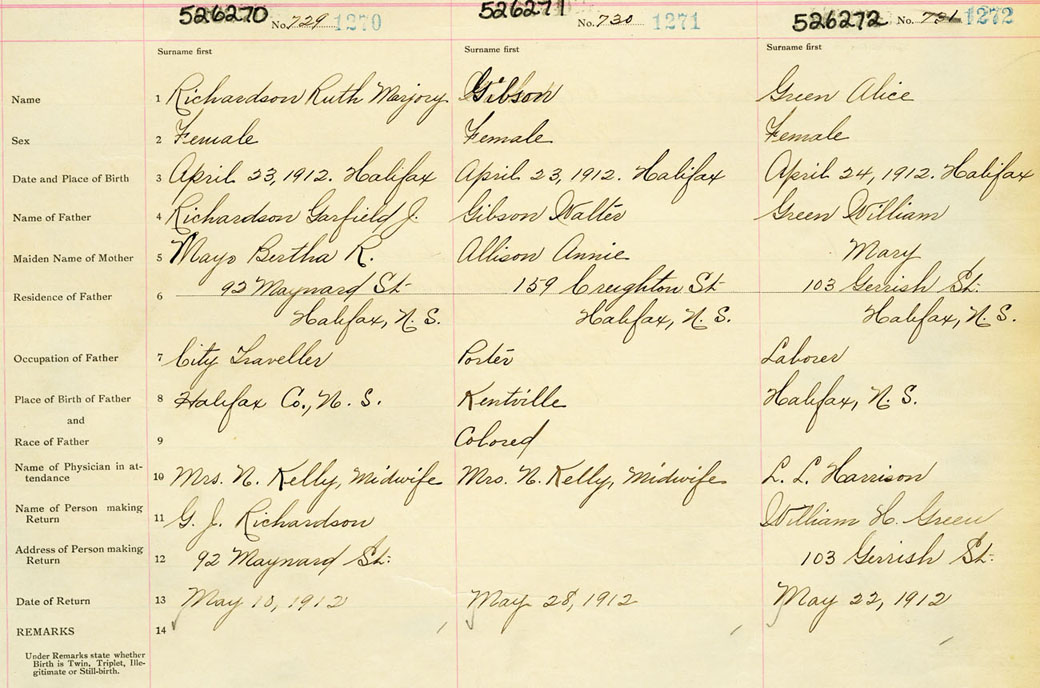 526270 No. 729 1270 526271 No. 730 1271 526272 No. 731 1272
Surname first Surname first Surname first
Name 1 Richardson Ruth Marjory Gibson Green Alice
Sex 2 Female Female Female
Date and Place of Birth 3 April 23, 1912. Halifax April 23, 1912. Halifax April 24, 1912. Halifax
Name of Father 4 Richardson Garfield J. Gibson Walter Green William
Maiden Name of Mother 5 Mayo Bertha R. Allison Annie Mary
Residence of Father 6 92 Maynard St 159 Creighton St 103 Gerrish St.
Halifax, N. S. Halifax, N. S. Halifax, N. S.
Occupation of Father 7 City Traveller Porter Laborer
Place of Birth of Father 8 Halifax Co., N. S. Kentville Halifax, N. S.
and
Race of Father 9 Colored
Name of Physician in at-
tendance 10 Mrs. N. Kelly, Midwife Mrs. N. Kelly, Midwife L. L. Harrison
Name of Person making
Return 11 G. J. Richardson William H. Green
Address of Person making
Return 12 92 Maynard St. 103 Gerrish St.
Date of Return 13 May 10, 1912 May 28, 1912 May 22, 1912
REMARKS 14
Under Remarks state whether
Birth is Twin, Triplet, Ille-
gitimate or Still-birth.